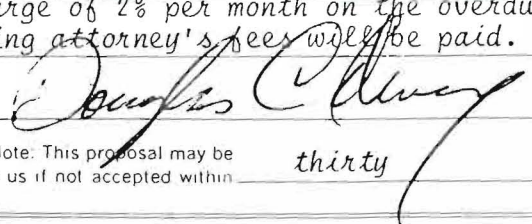 rge of 2% per month on the overdu
ing attorney's fees will be paid.
Douglas C
ote: This proposal may be
us if not accepted within thirty